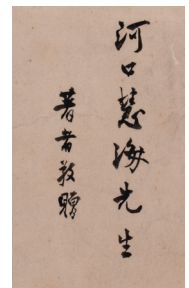 河口慧海先生
著者敬贈